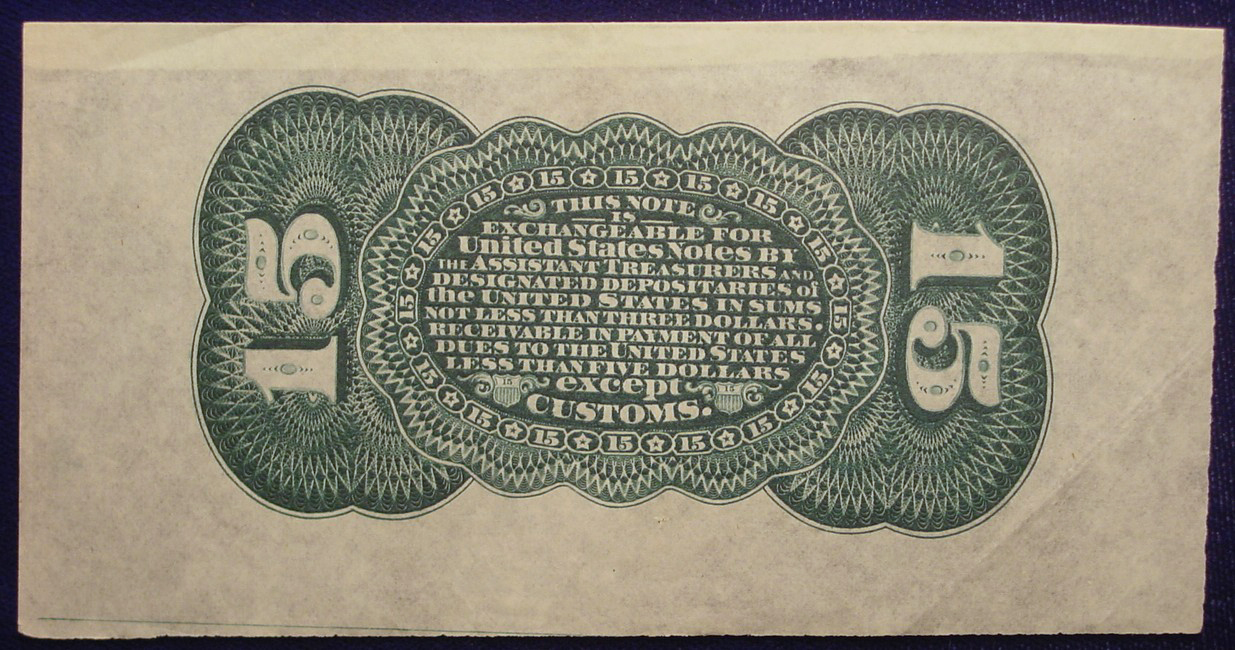 15 15 15 15 15 15 15 15 15 15 15 15 15 15 15 15 15 15
15
THIS NOTE
IS
EXCHANGEABLE FOR
United States Notes BY
THE ASSISTANT TREASURERS AND
DESIGNATED DEPOSITARIES of
the UNITED STATES IN SUMS
NOT LESS THAN THREE DOLLARS.
RECEIVABLE IN PAYMENT OF ALL
DUES TO THE UNITED STATES
LESS THAN FIVE DOLLARS
15 except 15
CUSTOMS.
15